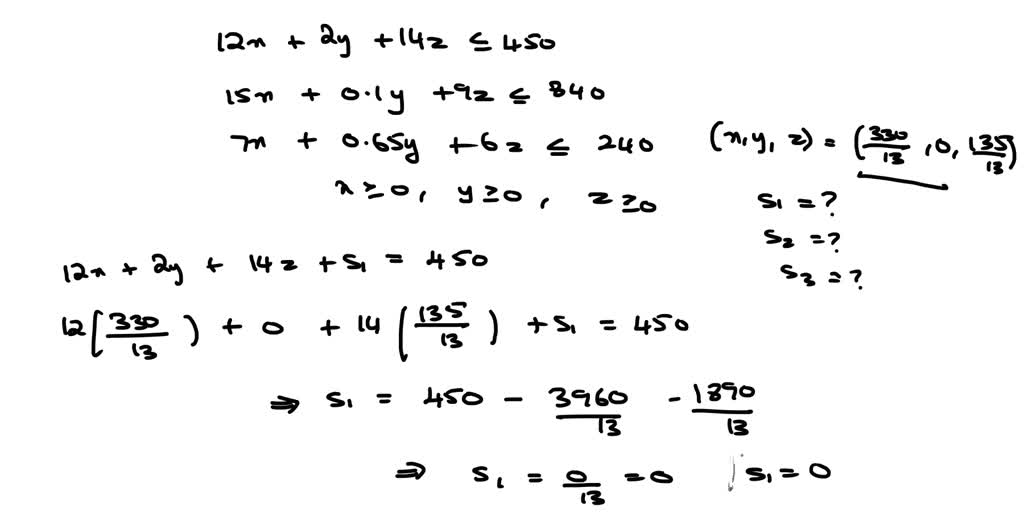 12x + 2y + 14z ≤ 450
15x + 0.1y + 9z ≤ 840
7x + 0.65y + 6z ≤ 240
x ≥ 0, y ≥ 0, z ≥ 0
(x, y, z) = (330/13, 0, 135/13)
S1 = ?
S2 = ?
S3 = ?
12x + 2y + 14z + S1 = 450
12[330/13) + 0 + 14(135/13) + S1 = 450
⇒ S1 = 450 - 3960/13 - 1890/13
⇒ S1 = 0/13 = 0 S1 = 0